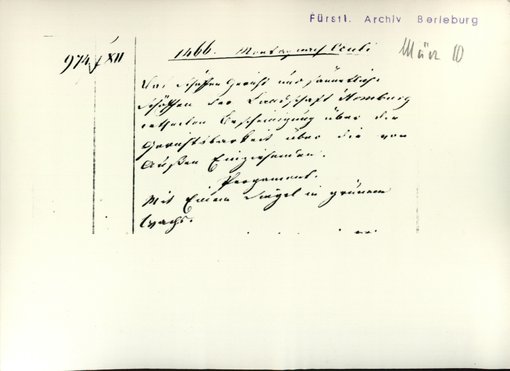 Fürstl. Archiv Berleburg
März 10
974 / XII
1466. Montag nach Oculi
Das Schöffen Gericht und sämmtliche
Schöffen der Landschaft Homburg
ertheilen Bescheinigung über die
Gerichtsbarkeit über die von
Außen Einziehenden.
Pergament.
Mit Einem Siegel in grünem
Wachs.